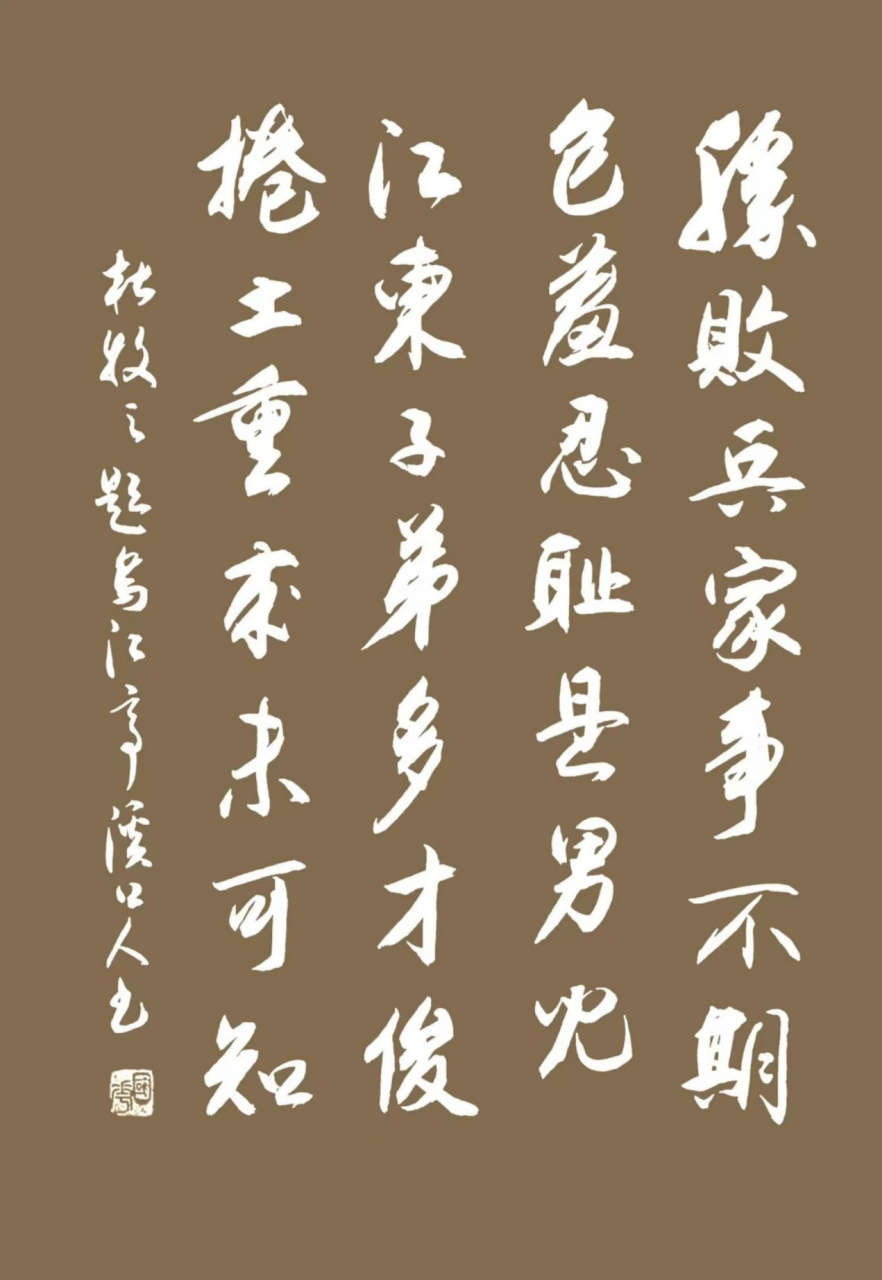 勝敗兵家事不期
包羞忍耻是男兒
江東子弟多才俊
捲土重來未可知
杜牧之題烏江亭溪口人书